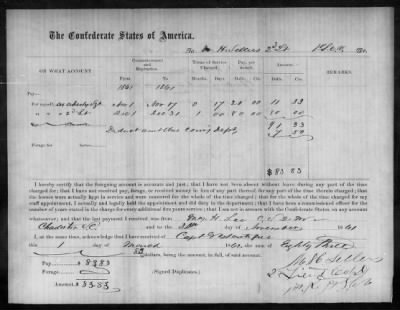 The Confederate States of America,
To H Sellers 2d Lt Dr.
ON WHAT ACCOUNT
Commencement and Expiration.
Terms of Service Charged.
Pay, per Month.
Amount.
REMARKS.
From To Months. Days. Dolls. Cts. Dolls. Cts.
1861 1861
Pay—
For myself, Nov 1 Nov 17 0 17 20 00 11 33
" " 2d Lt Dec 1 Dec 31 1 00 80 00 80 00
91 33
Deduct amt due Dept
Forage for
$ 83 83
I hereby certify that the foregoing account is accurate and just; that I have not been absent without leave during any part of the time
charged for; that I have not received pay, forage, or received money in lieu of any part thereof, for any part of the time therein charged; that
the horses were actually kept in service and were mustered for the whole of the time charged; that for the whole of the time charged for my
staff appointment, I actually and legally held the appointment and did duty in the department; that I have been a commissioned officer for the
number of years stated in the charge for every additional five years service; that I am not in arrears with the Confederate States, on any account
whatsoever; and that the last payment I received was from Lee
Charleston S.C. and to the day of November 1861
I, at the same time, acknowledge that I have received of Capt
this 1 day of 186 , the sum of Eighty Three
83 dollars, being the amount, in full, of said account.
Pay $ 83 83
Forage
Amount $ 83.83
(Signed Duplicates.)
H Sellers
2 Lieut